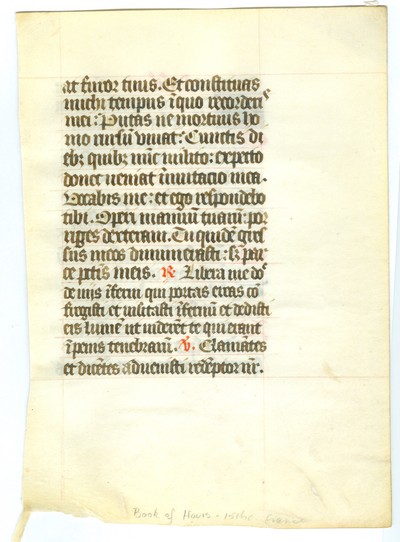 at furor tuus. Et constituas
michi tempus ĩ quo recorderis
mei: Putas ne mortuus ho
mo rursũ viuat: Cunctis di
ebꝫ quibꝫ nũc milito: expecto
donec ueniat ĩmutacio mea.
Vocabis me: et ego respondebo
tibi. Operi manuũ tuarũ: por
riges dexteram. Tu quidẽ gres
sus meos dinumerasti: sꝫ par
ce pctĩs meis. ℟. Libera me dñe
de uijs ĩferni qui portas ereas cõ
fregisti et uisitasti ĩfernũ et dedisti
eis lumẽ ut uiderẽt te qui erant
ĩ penis tenebrarũ. ℣. Clamãtes
et dicẽtes aduenisti redẽptor nr̃.
Book of Hours - France